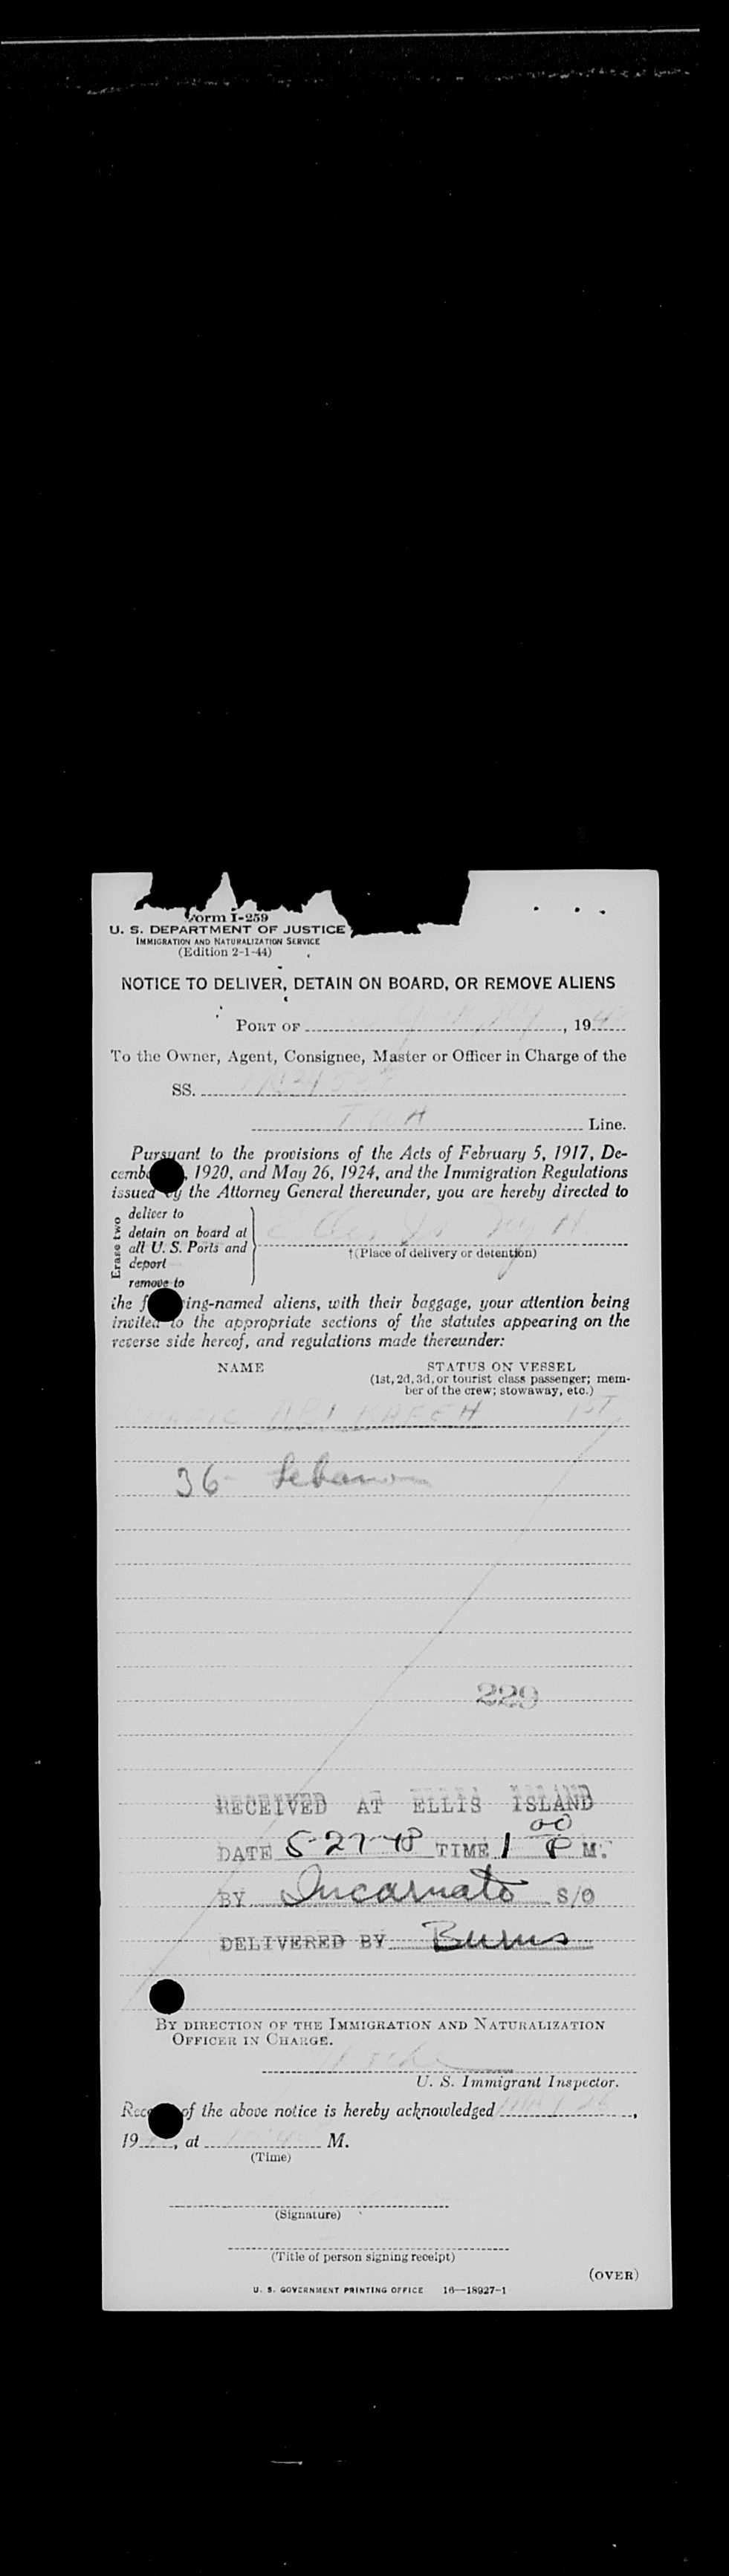 Form I-259
U. S. DEPARTMENT OF JUSTICE
IMMIGRATION AND NATURALIZATION SERVICE
(Edition 2-1-44)
NOTICE TO DELIVER, DETAIN ON BOARD, OR REMOVE ALIENS
PORT OF , 1948
To the Owner, Agent, Consignee, Master or Officer in Charge of the
SS.
Line.
Pursuant to the provisions of the Acts of February 5, 1917, De-
cemb , 1920, and May 26, 1924, and the Immigration Regulations
issued by the Attorney General thereunder, you are hereby directed to
Erase two
deliver to
detain on board at
all U. S. Ports and
deport
remove to
†(Place of delivery or detention)
the f ing-named aliens, with their baggage, your attention being
invited to the appropriate sections of the statutes appearing on the
reverse side hereof, and regulations made thereunder:
NAME STATUS ON VESSEL
(1st, 2d, 3d, or tourist class passenger; mem-
ber of the crew; stowaway, etc.)
ABI KAFEH 1ST
36- Lebanon
229
RECEIVED AT ELLIS ISLAND
DATE 5-27-48 TIME 1 00 P M.
BY Incarnato S/O
DELIVERED BY Burns
BY DIRECTION OF THE IMMIGRATION AND NATURALIZATION
OFFICER IN CHARGE.
U. S. Immigrant Inspector.
Rec of the above notice is hereby acknowledged MAY 26,
19 , at M.
(Time)
(Signature)
(Title of person signing receipt)
(OVER)
U. S. GOVERNMENT PRINTING OFFICE 16—18927-1